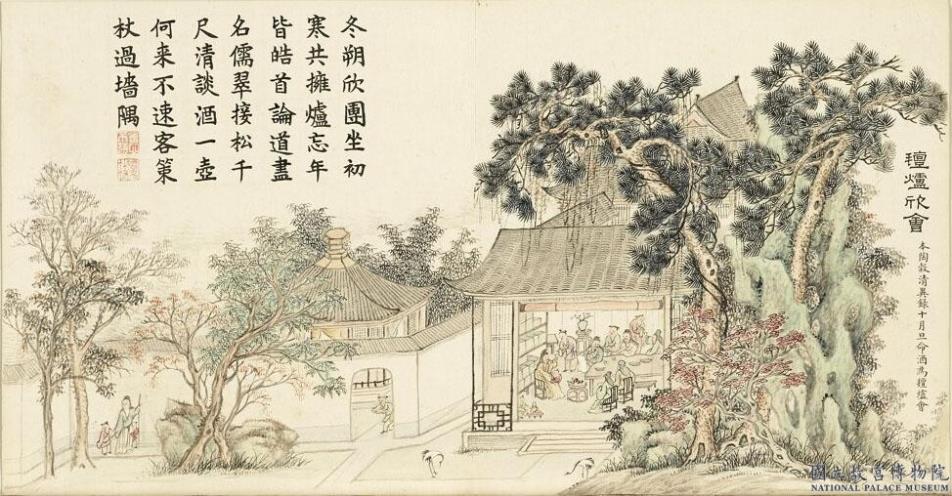 爐欣會
本陶穀清異錄十月旦命酒為爐會
冬朔欣團坐初
寒共擁爐忘年
皆皓首論道盡
名儒翠接松千
尺清談酒一壺
何来不速客策
杖過墻隅
國立故宮博物院
NATIONAL PALACE MUSEUM